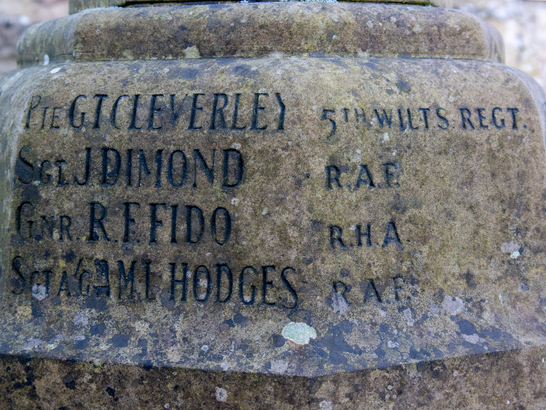 PTE G T CLEVERLEY 5TH WILTS. REGT.
SGT. J DIMOND R.A.F.
GNR. R. F. FIDO R.H.A.
SGT A/G A M. I. HODGES R.A.F.